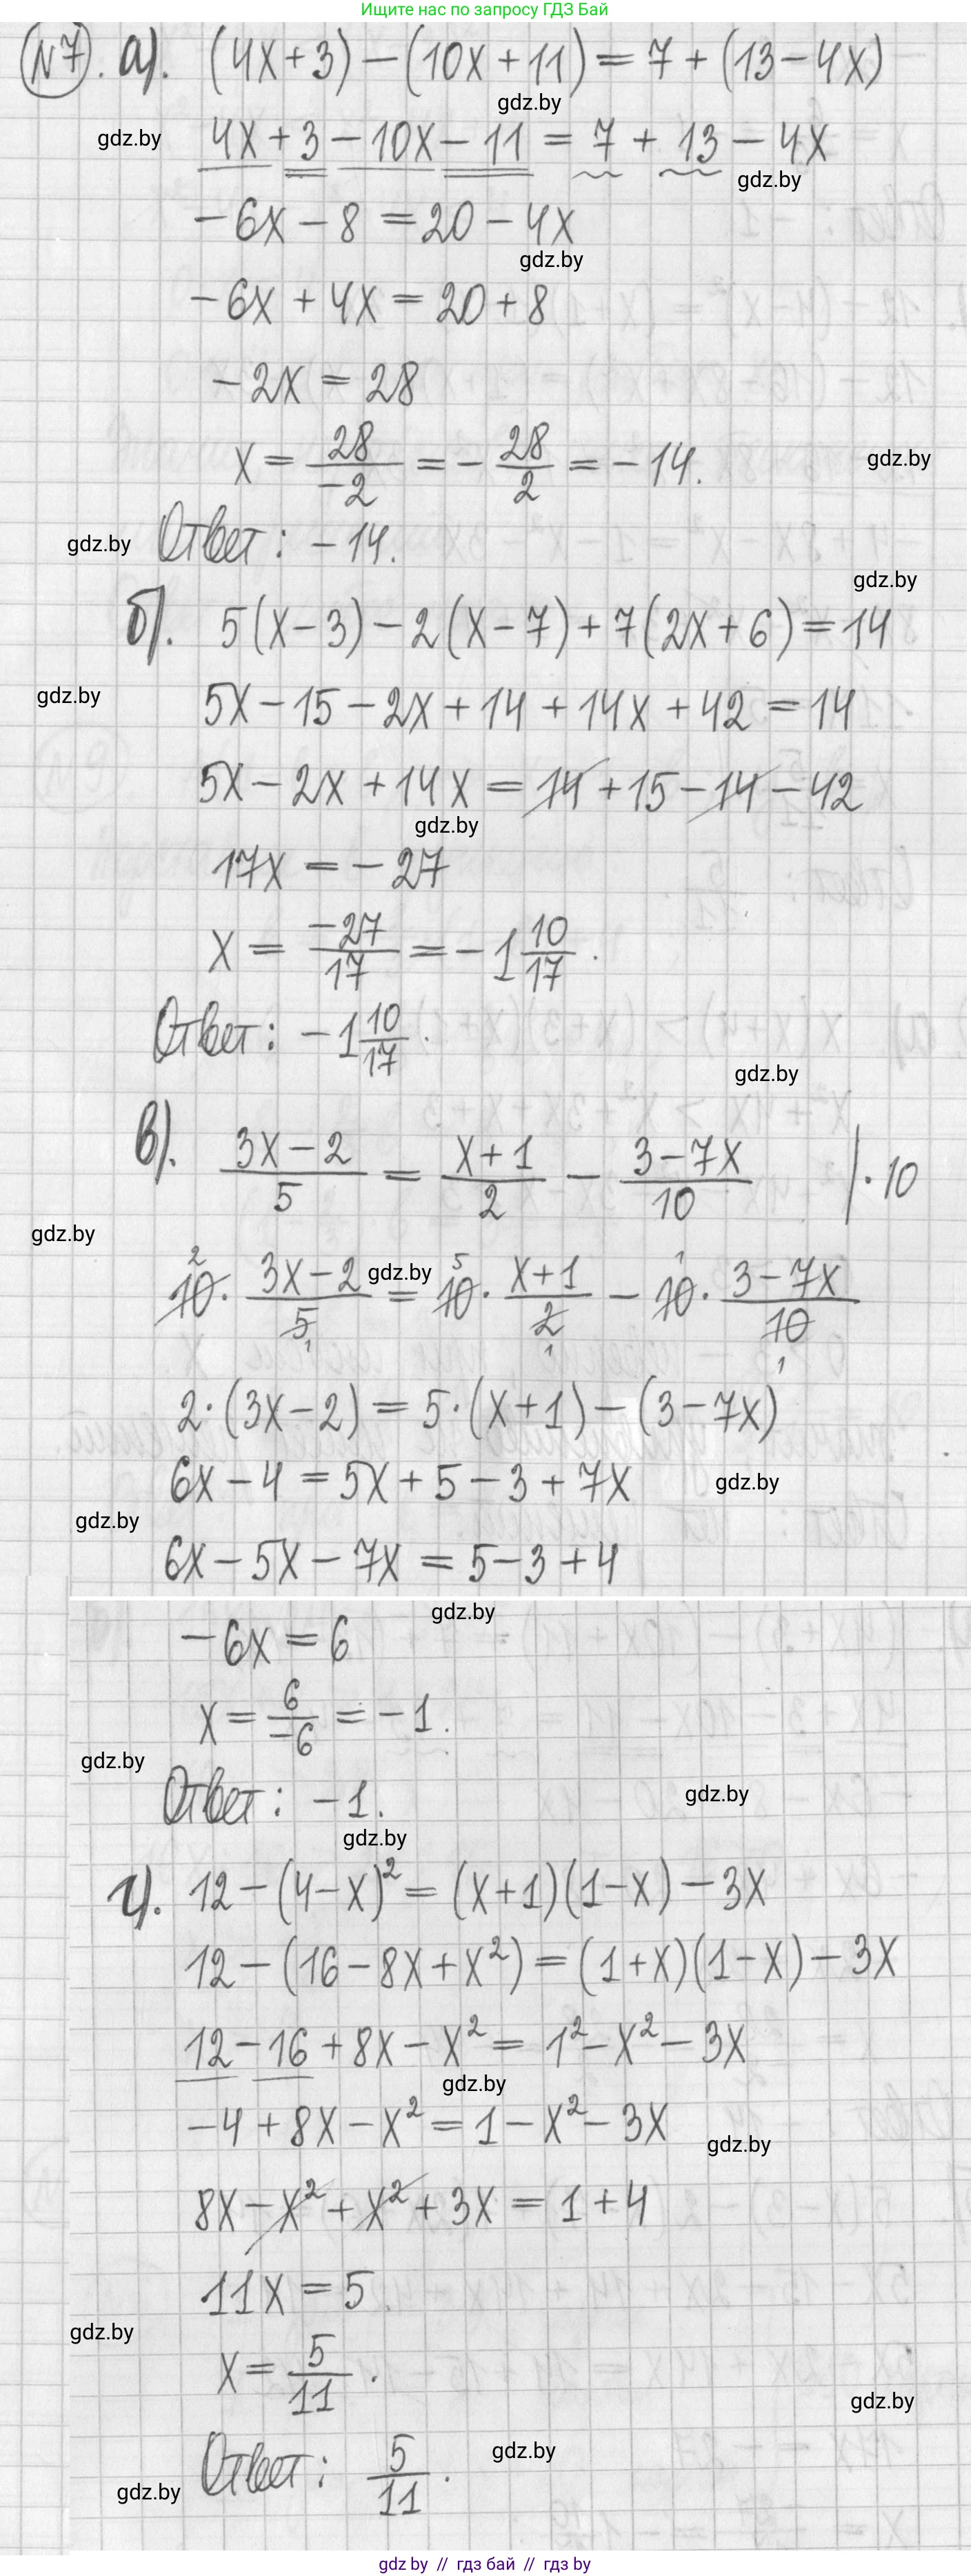 Ищите нас по запросу ГДЗ Бай
№7. а). (4x+3)-(10x+11)=7+(13-4x)
gdz.by
gdz.by
4x+3-10x-11=7+13-4x
gdz.by
-6x-8=20-4x
gdz.by
-6x+4x=20+8
-2x=28
x=28/-2=-28/2=-14.
gdz.by
gdz.by
Ответ: -14.
gdz.by
б). 5(x-3)-2(x-7)+7(2x+6)=14
gdz.by
5x-15-2x+14+14x+42=14
5x-2x+14x=14+15-14-42
gdz.by
17x=-27
x=-27/17=-1 10/17.
Ответ: -1 10/17.
gdz.by
в). 3x-2/5=x+1/2-3-7x/10 |·10
gdz.by
gdz.by
2 5 1
10·3x-2/5=10·x+1/2-10·3-7x/10
1 1 1
2·(3x-2)=5·(x+1)-(3-7x)
6x-4=5x+5-3+7x
gdz.by
gdz.by
6x-5x-7x=5-3+4
gdz.by
-6x=6
x=6/-6=-1.
gdz.by
gdz.by
Ответ: -1.
gdz.by
г). 12-(4-x)²=(x+1)(1-x)-3x
12-(16-8x+x²)=(1+x)(1-x)-3x
12-16+8x-x²=1²-x²-3x
gdz.by
-4+8x-x²=1-x²-3x
gdz.by
8x-x²+x²+3x=1+4
11x=5
gdz.by
x=5/11.
gdz.by
gdz.by
Ответ: 5/11.
gdz.by
gdz by // гдз бай // гдз by